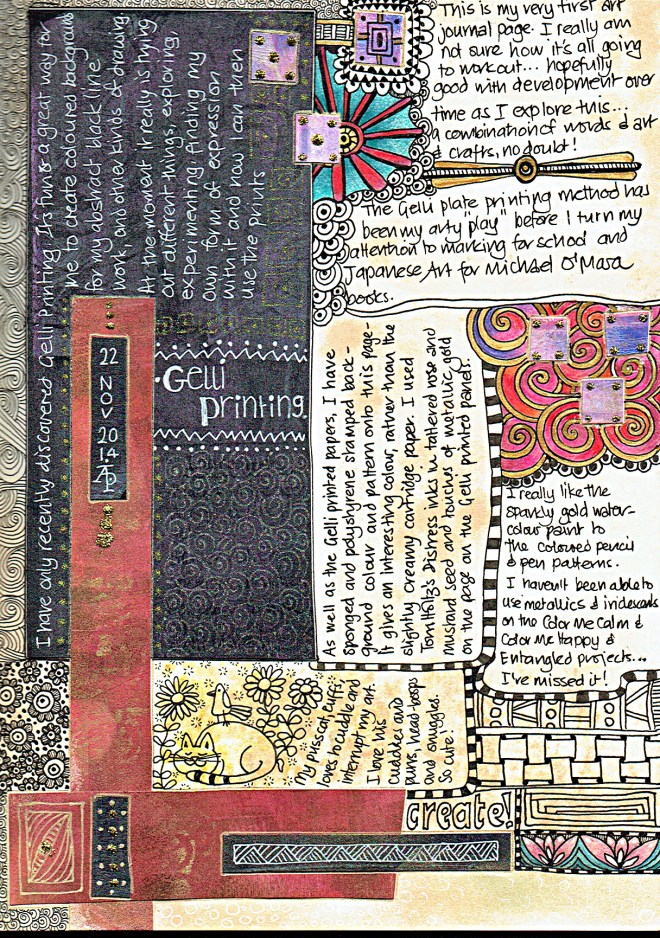 This is my very first art
journal page. I really am
not sure how it's all going
to work out... hopefully
good with development over
time as I explore this...
a combination of words & art
& crafts, no doubt!
The Gelli plate printing method has
been my arty "play" before I turn my
attention to marking for school and
Japanese Art for Michael O'Mara
books.
I have only recently discovered Gelli Printing. It's fun & a great way for
me to create coloured backgrounds
for my abstract black line
work, and other kinds of drawing.
At the moment it really is trying
out different things, exploring,
experimenting finding my
own form of expression
with it and how I can then
use the prints
22
NOV
20
14
Gelli
printing.
As well as the Gelli printed papers, I have
sponged and polystyrene stamped back-
ground colour and pattern onto this page-
It gives an interesting colour, rather than the
slightly creamy cartridge paper. I used
Tom Holtz's Distress inks in tattered rose and
mustard seed and touches of metallic gold
on the page on the Gelli printed panels.
I really like the
sparkly gold water-
colour paint to
the coloured pencil
& pen patterns.
I haven't been able to
use metallics & iridescents
on the Color Me Calm &
Color Me Happy &
Entangled projects...
I've missed it!
My prisscat, Cuffs,
loves to cuddle and
interrupt my art.
I love his
cuddles and
purrs, head-bops
and snuggles.
So cute!
create!